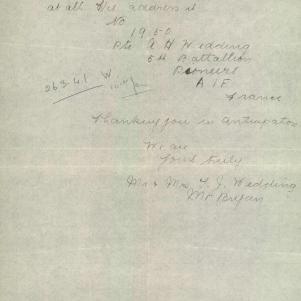 at all his address is
No
1950
Pte A H Wedding
5th Battalion
Pioneers
A I F
France
26341 W
Thanking you in Anticipation
We are
Yours truly
Mr & Mrs F. J. Wedding
Mt Bryan